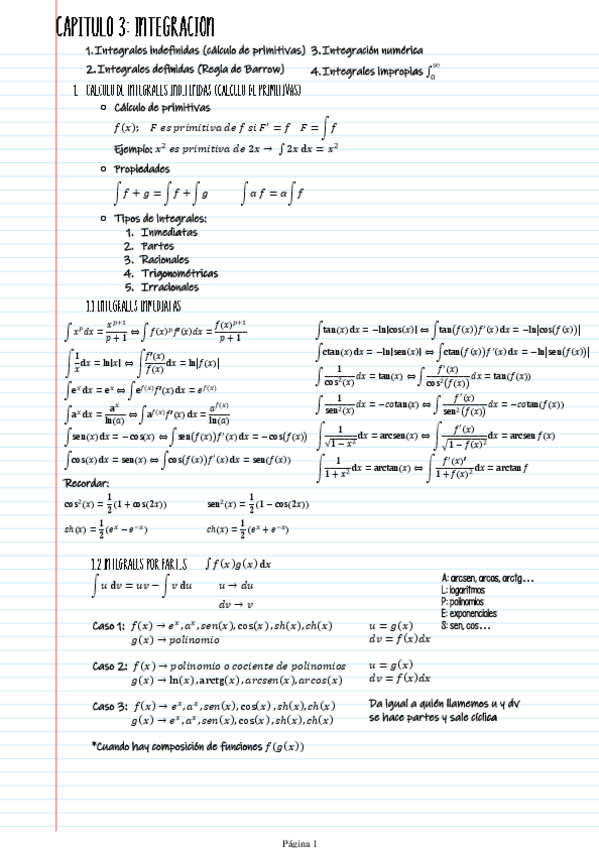 CAPITULO 3: INTEGRACION
1. Integrales indefinidas (cálculo de primitivas) 3. Integración numérica
2. Integrales definidas (Regla de Barrow) 4. Integrales impropias ∫₀^∞
1. CALCULO DE INTEGRALES INDEFINIDAS (CALCULO DE PRIMITIVAS)
○ Cálculo de primitivas
f(x); F es primitiva de f si F' = f F = ∫ f
Ejemplo: x² es primitiva de 2x → ∫ 2x dx = x²
○ Propiedades
∫ f + g = ∫ f + ∫ g ∫ α f = α ∫ f
○ Tipos de integrales:
1. Inmediatas
2. Partes
3. Racionales
4. Trigonométricas
5. Irracionales
1.1 INTEGRALES INMEDIATAS
∫ x^p dx = x^(p+1)/(p+1) ⇔ ∫ f(x)^p f'(x)dx = f(x)^(p+1)/(p+1)
∫ 1/x dx = ln|x| ⇔ ∫ f'(x)/f(x) dx = ln|f(x)|
∫ e^x dx = e^x ⇔ ∫ e^f(x) f'(x) dx = e^f(x)
∫ a^x dx = a^x/ln(a) ⇔ ∫ a^f(x) f'(x) dx = a^f(x)/ln(a)
∫ sen(x) dx = −cos(x) ⇔ ∫ sen(f(x)) f'(x) dx = −cos(f(x))
∫ cos(x) dx = sen(x) ⇔ ∫ cos(f(x)) f'(x) dx = sen(f(x))
∫ tan(x) dx = −ln|cos(x)| ⇔ ∫ tan(f(x)) f'(x) dx = −ln|cos(f(x))|
∫ ctan(x) dx = −ln|sen(x)| ⇔ ∫ ctan(f(x)) f'(x) dx = −ln|sen(f(x))|
∫ 1/cos²(x) dx = tan(x) ⇔ ∫ f'(x)/cos²(f(x)) dx = tan(f(x))
∫ 1/sen²(x) dx = −cotan(x) ⇔ ∫ f'(x)/sen²(f(x)) dx = −cotan(f(x))
∫ 1/√(1 − x²) dx = arcsen(x) ⇔ ∫ f'(x)/√(1 − f(x)²) dx = arcsen f(x)
∫ 1/(1 + x²) dx = arctan(x) ⇔ ∫ f'(x)'/(1 + f(x)²) dx = arctan f
Recordar:
cos²(x) = 1/2 (1 + cos(2x)) sen²(x) = 1/2 (1 − cos(2x))
sh(x) = 1/2 (e^x − e^−x) ch(x) = 1/2 (e^x + e^−x)
1.2 INTEGRALES POR PARTES ∫ f(x)g(x) dx
∫ u dv = uv − ∫ v du u → du
dv → v
A: arcsen, arcos, arctg...
L: logaritmos
P: polinomios
E: exponenciales
S: sen, cos...
Caso 1: f(x) → e^x, a^x, sen(x), cos(x), sh(x), ch(x) u = g(x)
g(x) → polinomio dv = f(x)dx
Caso 2: f(x) → polinomio o cociente de polinomios u = g(x)
g(x) → ln(x), arctg(x), arcsen(x), arcos(x) dv = f(x)dx
Caso 3: f(x) → e^x, a^x, sen(x), cos(x), sh(x), ch(x) Da igual a quién llamemos u y dv
g(x) → e^x, a^x, sen(x), cos(x), sh(x), ch(x) se hace partes y sale cíclica
*Cuando hay composición de funciones f(g(x))
Página 1